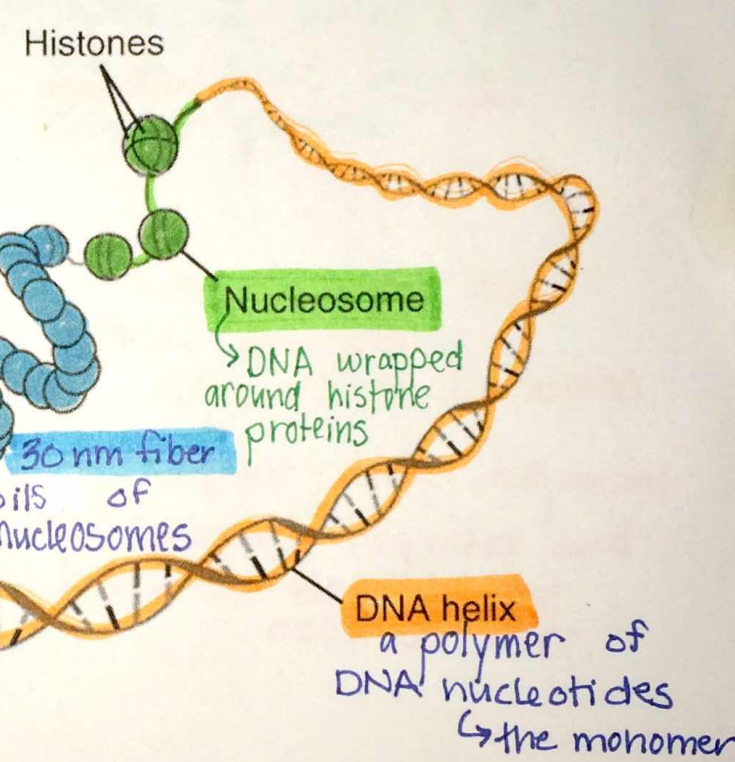 Histones
Nucleosome
DNA wrapped
around histone
proteins
30nm fiber
oils of
nucleosomes
DNA helix
a polymer of
DNA nucleotides
the monomer